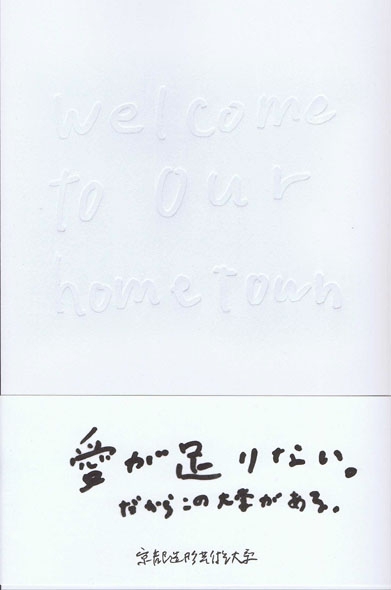 welcome
to our
hometown
愛が足りない。
だからこの大学がある。
京都造形芸術大学